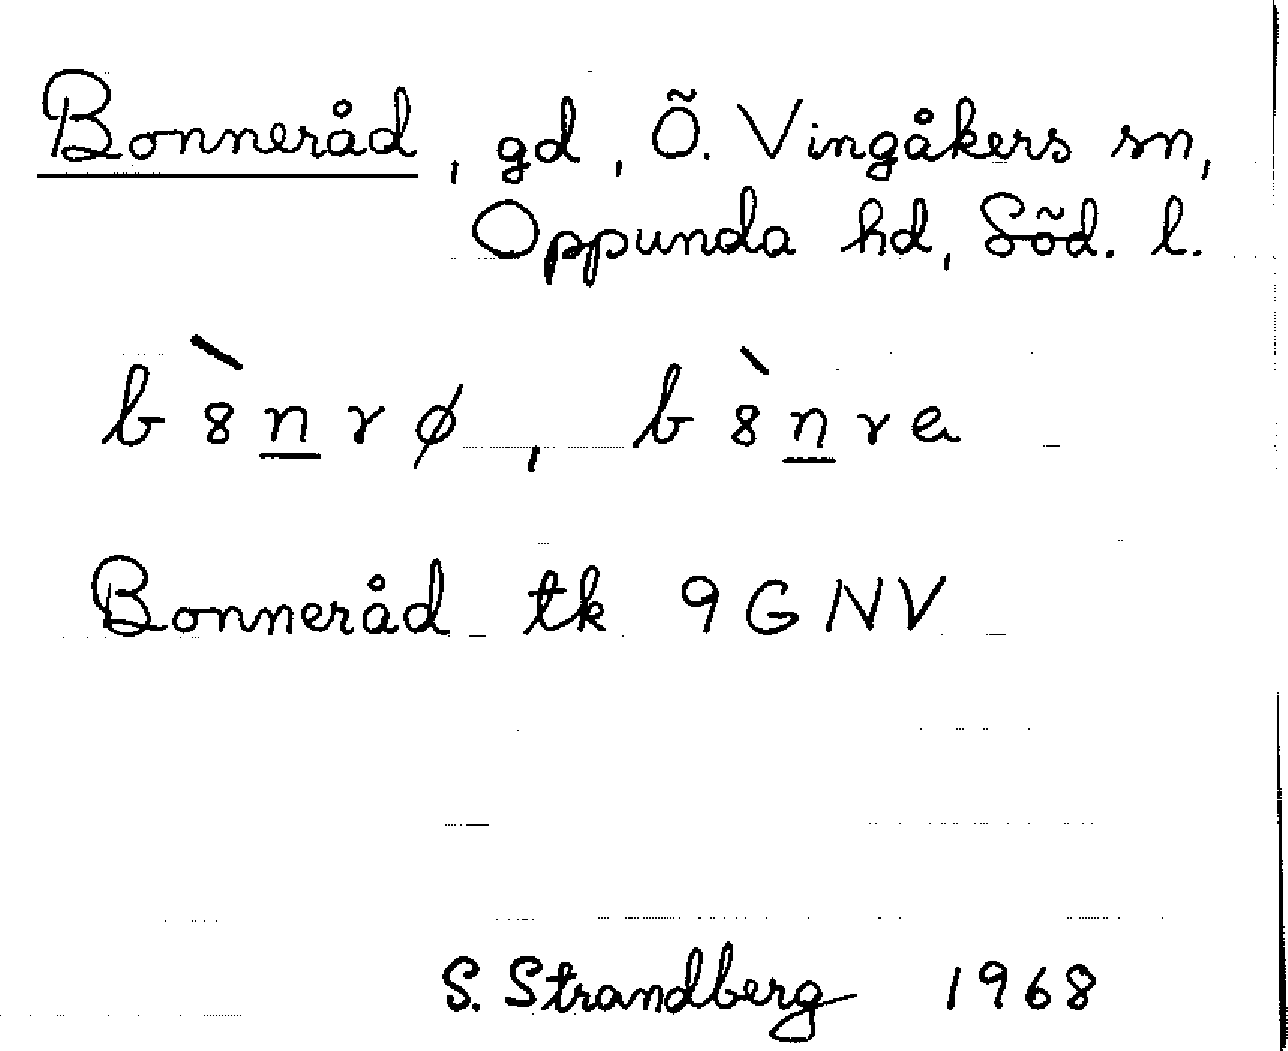 Bonneråd, gd, Õ. Vingåkers sn,
Oppunda hd, Sõd. l.
b 8̀ n̲ r ø, b 8̀ n̲ r a
Bonneråd tk 9G NV
S. Strandberg 1968